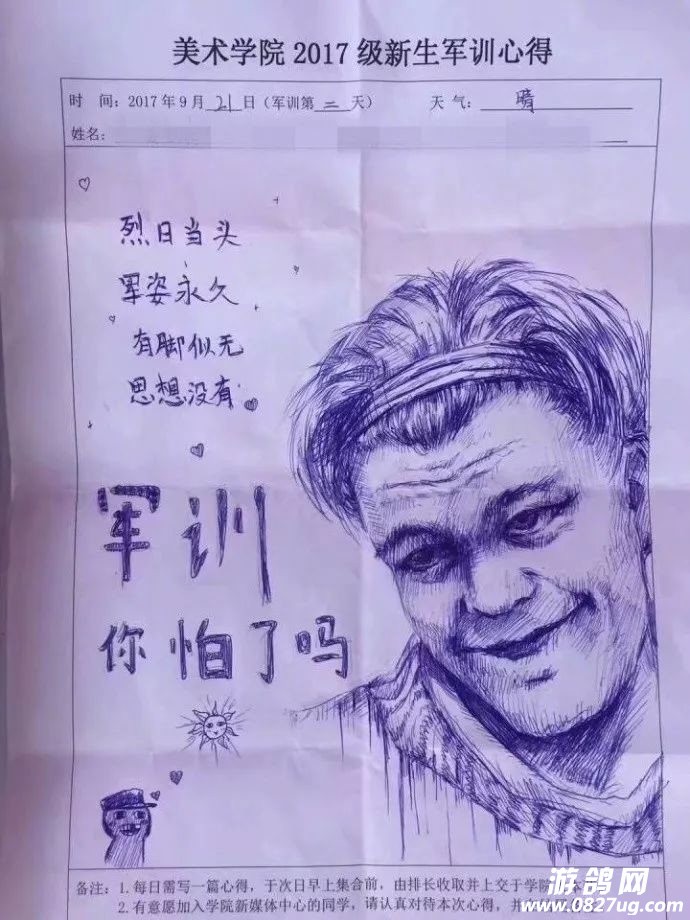 美术学院 2017 级新生军训心得
时 间：2017 年 9 月 21 日（军训第 二 天） 天 气： 晴
姓名：
烈日当头
军姿永久
有脚似无
思想没有
军训
你怕了吗
备注：1. 每日需写一篇心得，于次日早上集合前，由排长收取并上交于学院
2. 有意愿加入学院新媒体中心的同学，请认真对待本次心得，并
游鸽网
www.0827ug.com